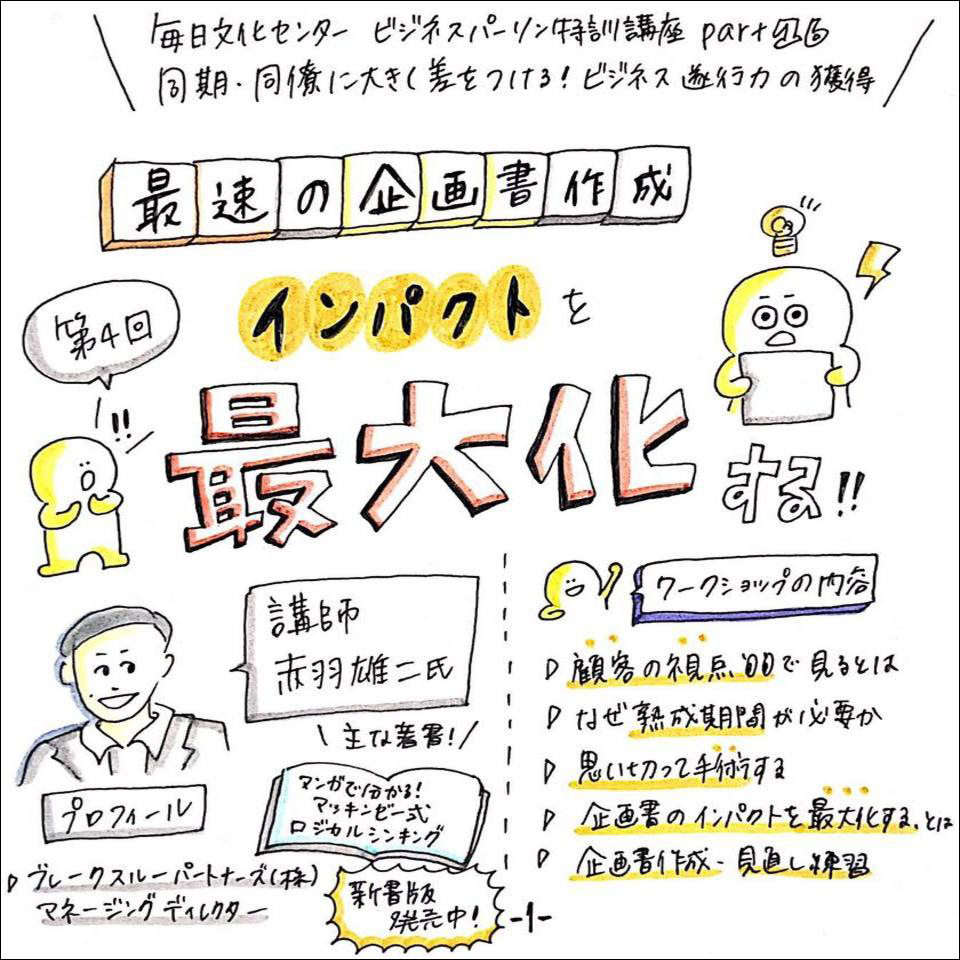 毎日文化センター ビジネスパーソン特訓講座 part16
同期・同僚に大きく差をつける!ビジネス遂行力の獲得
最速の企画書作成
インパクトを
第4回
最大化
する!!
!!
講師
赤羽雄二氏
主な著書!
マンガで分かる!
マッキンゼー式
ロジカルシンキング
プロフィール
ブレークスルーパートナーズ(株)
マネージングディレクター
新書版
発売中!
ワークショップの内容
顧客の視点で見るとは
なぜ熟成期間が必要か
思い切って手術する
企画書のインパクトを最大化する、とは
企画書作成・見直し練習
-1-